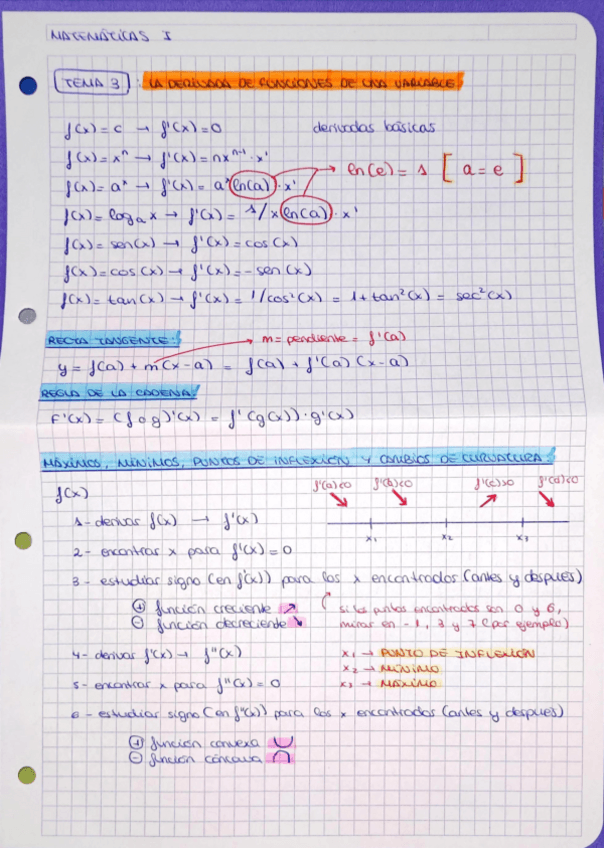 MATEMÁTICAS I
TEMA 3 : LA DERIVADA DE FUNCIONES DE UNA VARIABLE
f(x) = c → f'(x) = 0 derivadas básicas
f(x) = xⁿ → f'(x) = nxⁿ⁻¹ · x'
f(x) = aˣ → f'(x) = aˣ ln(a) · x' → ln(e) = 1 [ a = e ]
f(x) = logₐ x → f'(x) = 1/x ln(a) · x'
f(x) = sen(x) → f'(x) = cos(x)
f(x) = cos(x) → f'(x) = -sen(x)
f(x) = tan(x) → f'(x) = 1/cos²(x) = 1 + tan²(x) = sec²(x)
RECTA TANGENTE: → m = pendiente = f'(a)
y = f(a) + m(x-a) = f(a) + f'(a)(x-a)
REGLA DE LA CADENA:
F'(x) = (f o g)'(x) = f'(g(x)) · g'(x)
MÁXIMOS, MÍNIMOS, PUNTOS DE INFLEXIÓN Y CAMBIOS DE CURVATURA:
f'(a)<0 f'(b)<0 f'(c)>0 f'(d)<0
f(x)
1- derivar f(x) → f'(x)
x₁ x₂ x₃
2- encontrar x para f'(x) = 0
3- estudiar signo (en f'(x)) para los x encontrados (antes y después)
⊕ función creciente ↗ si los puntos encontrados son 0 y 6,
⊖ función decreciente ↘ miras en -1, 3 y 7 (por ejemplo)
4- derivar f'(x) → f''(x) x₁ → PUNTO DE INFLEXIÓN
x₂ → MÍNIMO
5- encontrar x para f''(x) = 0 x₃ → MÁXIMO
6- estudiar signo (en f''(x)) para los x encontrados (antes y después)
⊕ función convexa ∪
⊖ función cóncava ∩